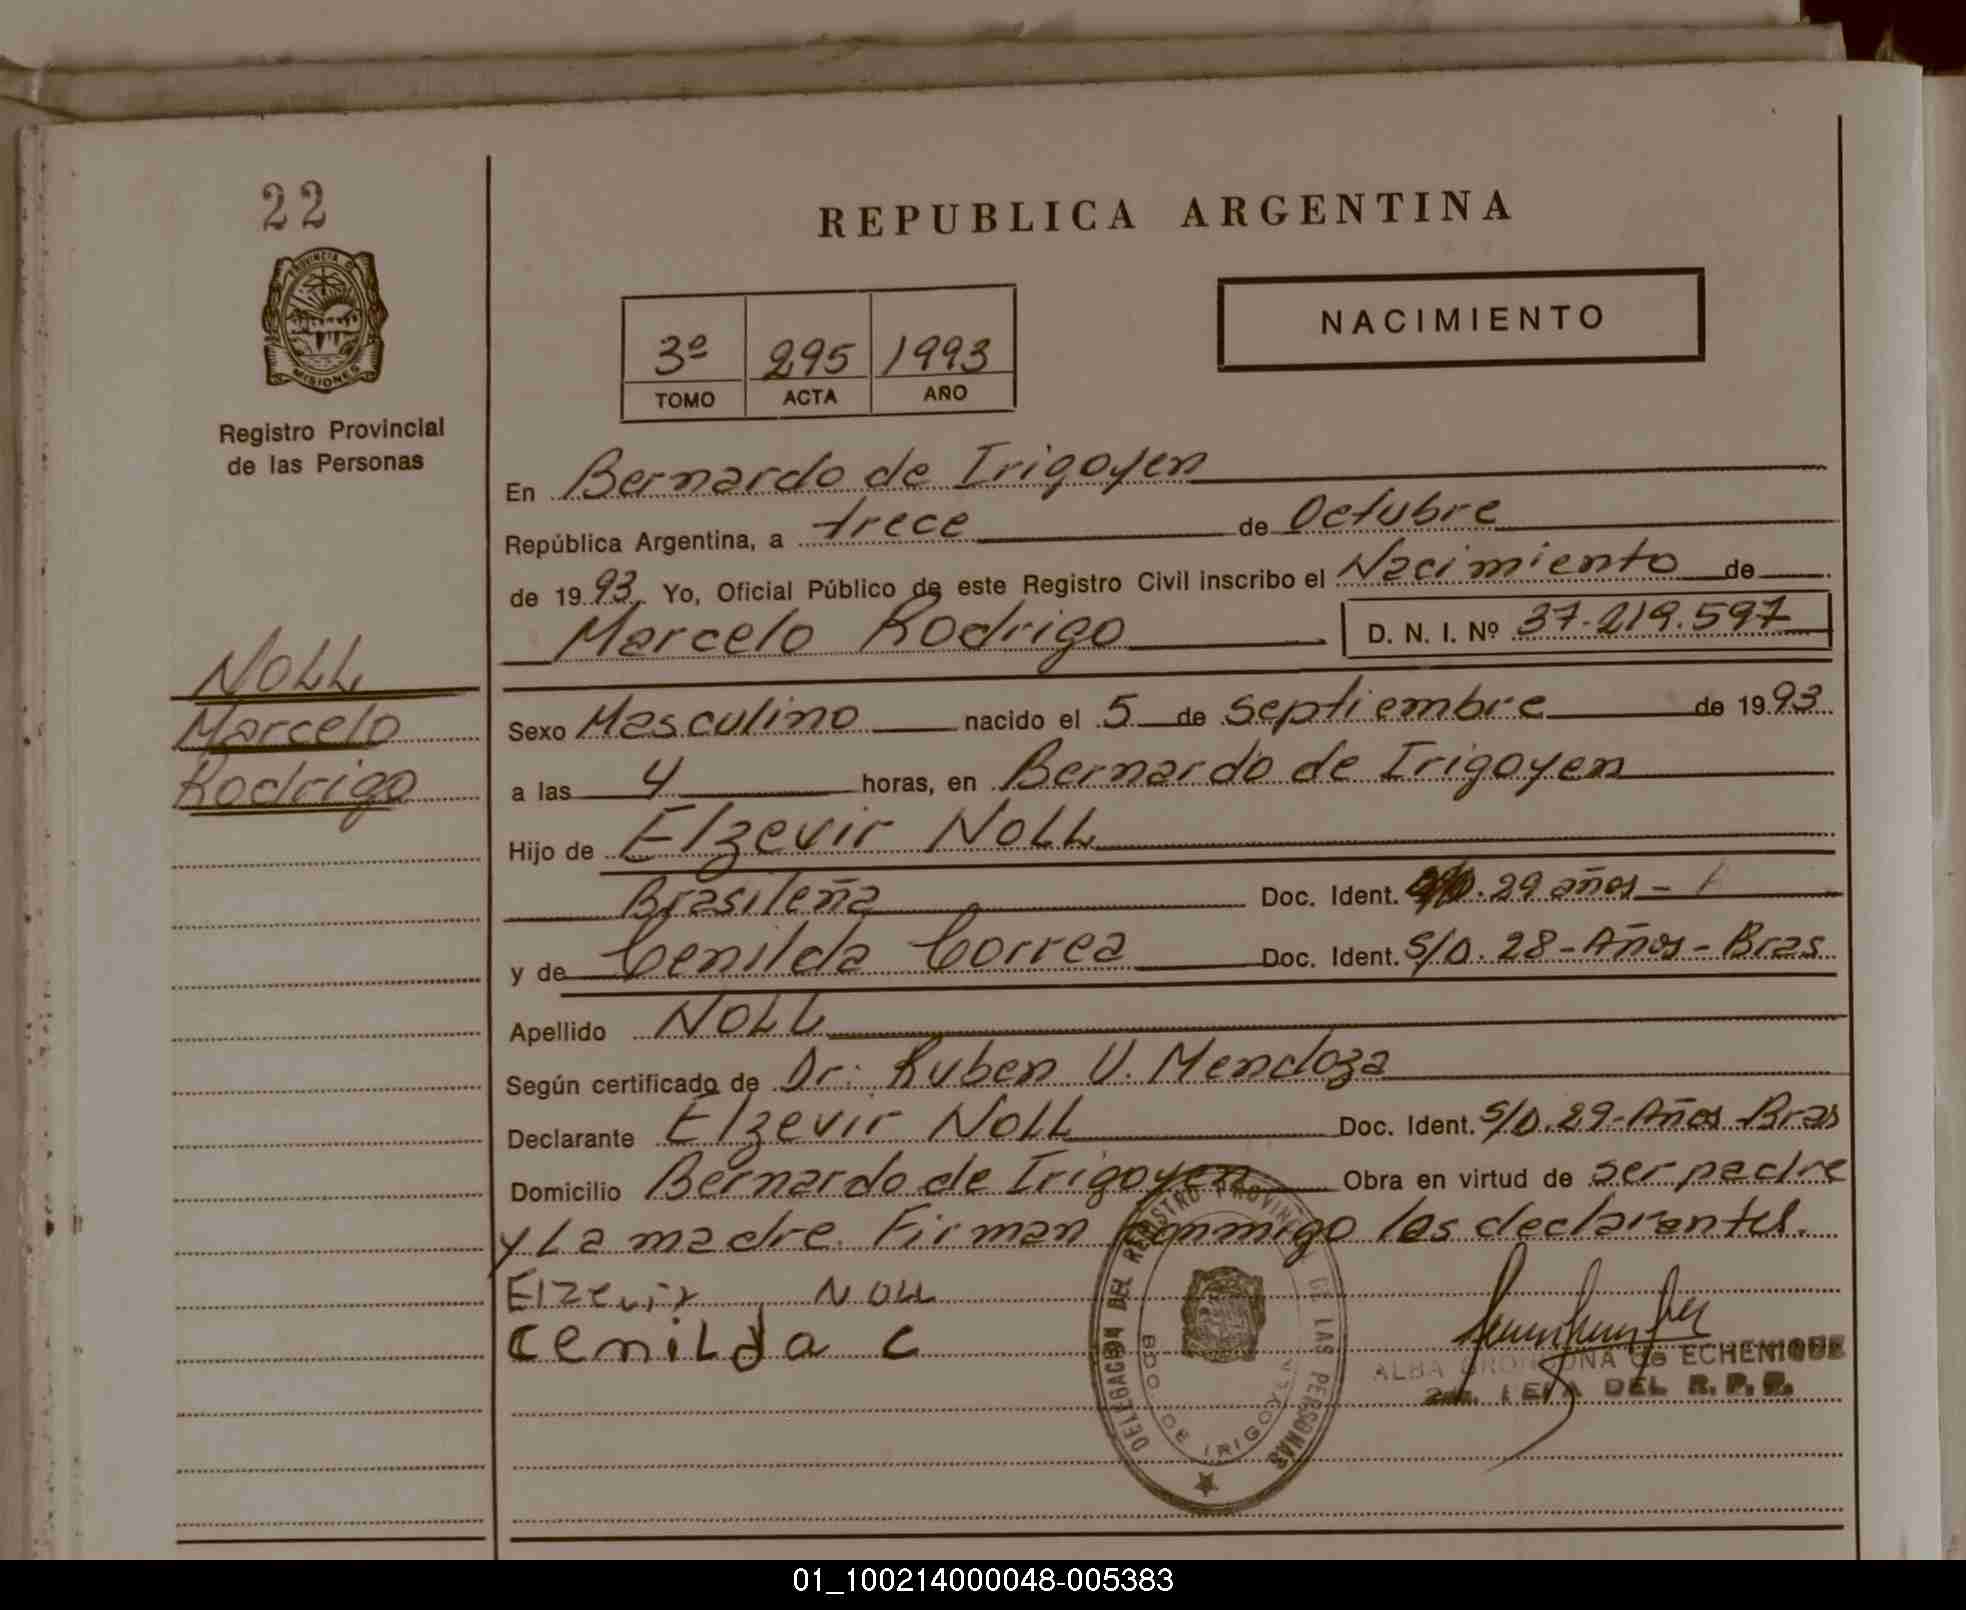 22
PROVINCIA DE
MISIONES
Registro Provincial
de las Personas
NOLL
Marcelo
Rodrigo
REPUBLICA ARGENTINA
NACIMIENTO
3º 295 1993
TOMO ACTA AÑO
En Bernardo de Irigoyen
República Argentina, a trece de Octubre
de 1993 Yo, Oficial Público de este Registro Civil inscribo el Nacimiento de
Marcelo Rodrigo D. N. I. Nº 37.219.597
Sexo Masculino nacido el 5 de Septiembre de 1993
a las 4 horas, en Bernardo de Irigoyen
Hijo de Elzevir NOLL
Brasileña Doc. Ident. 29 años -
y de Cenilda Correa Doc. Ident. S/D. 28-Años-Bras.
Apellido NOLL
Según certificado de Dr: Ruben U. Mendoza
Declarante Elzevir NOLL Doc. Ident. S/D. 29-Años-Bras
Domicilio Bernardo de Irigoyen Obra en virtud de ser padre
y La madre. Firman conmigo los declarantes.
Elzevir NOLL
cenilda c
DELEGACION DEL REGISTRO PROVINCIAL DE LAS PERSONAS
BDO. DE IRIGOYEN
ALBA de ECHENIQUE
JEFA DEL R. P. P.
01_100214000048-005383